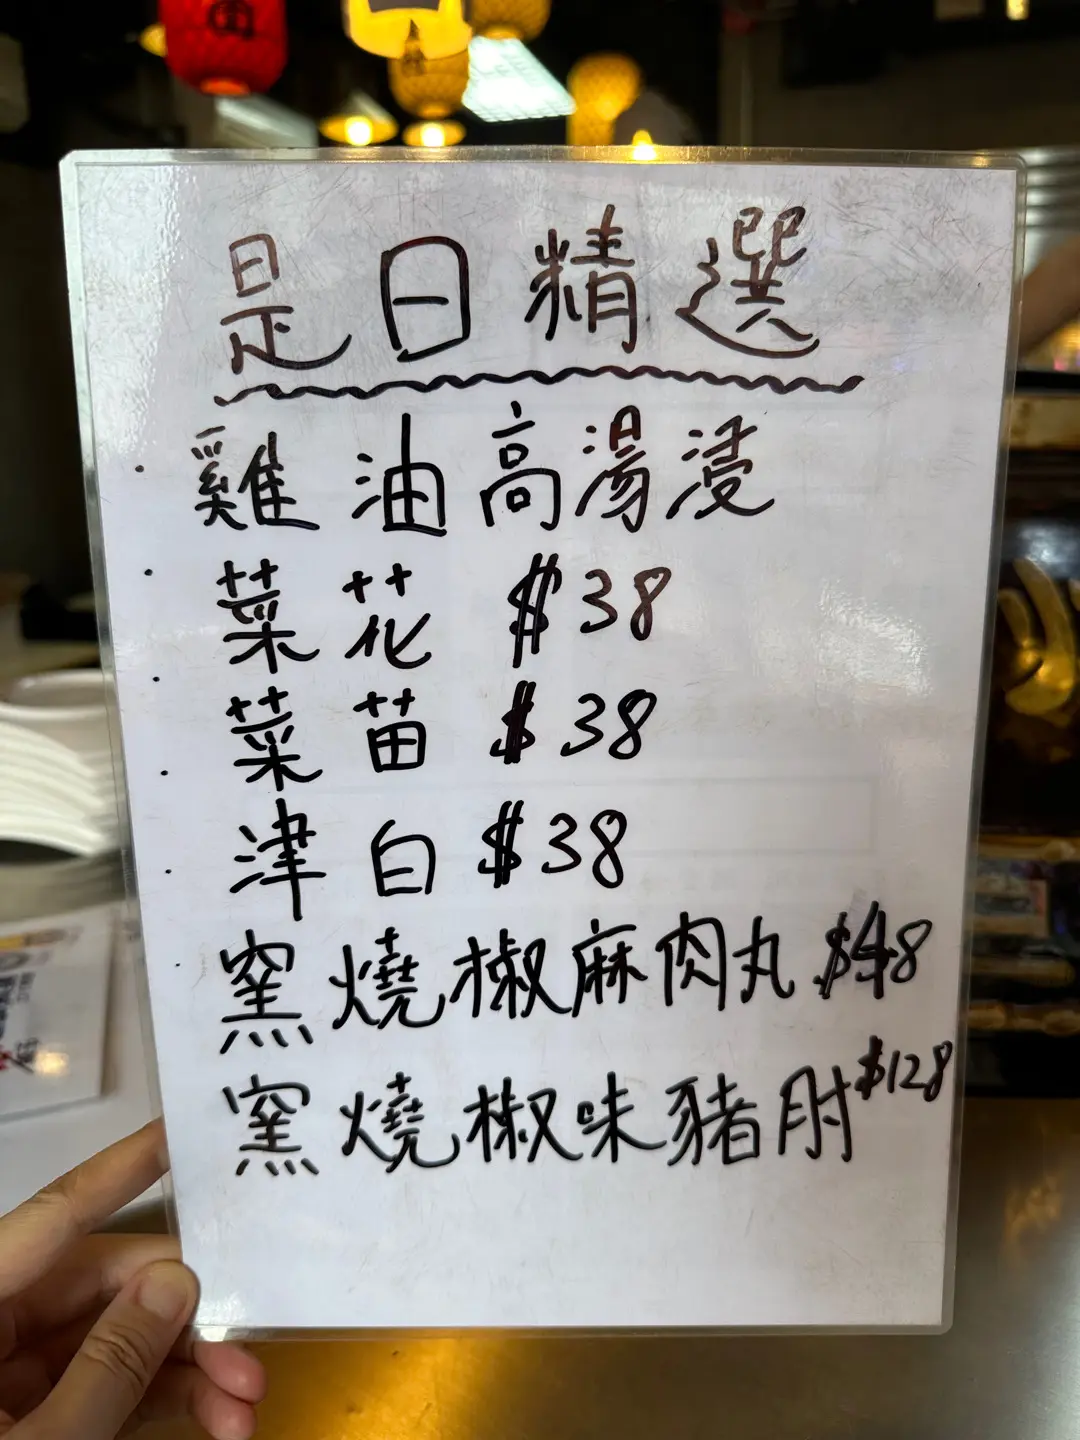 是日精選
雞油高湯浸
菜花 $38
菜苗 $38
津白 $38
窯燒椒麻肉丸 $48
窯燒椒味豬肘 $128